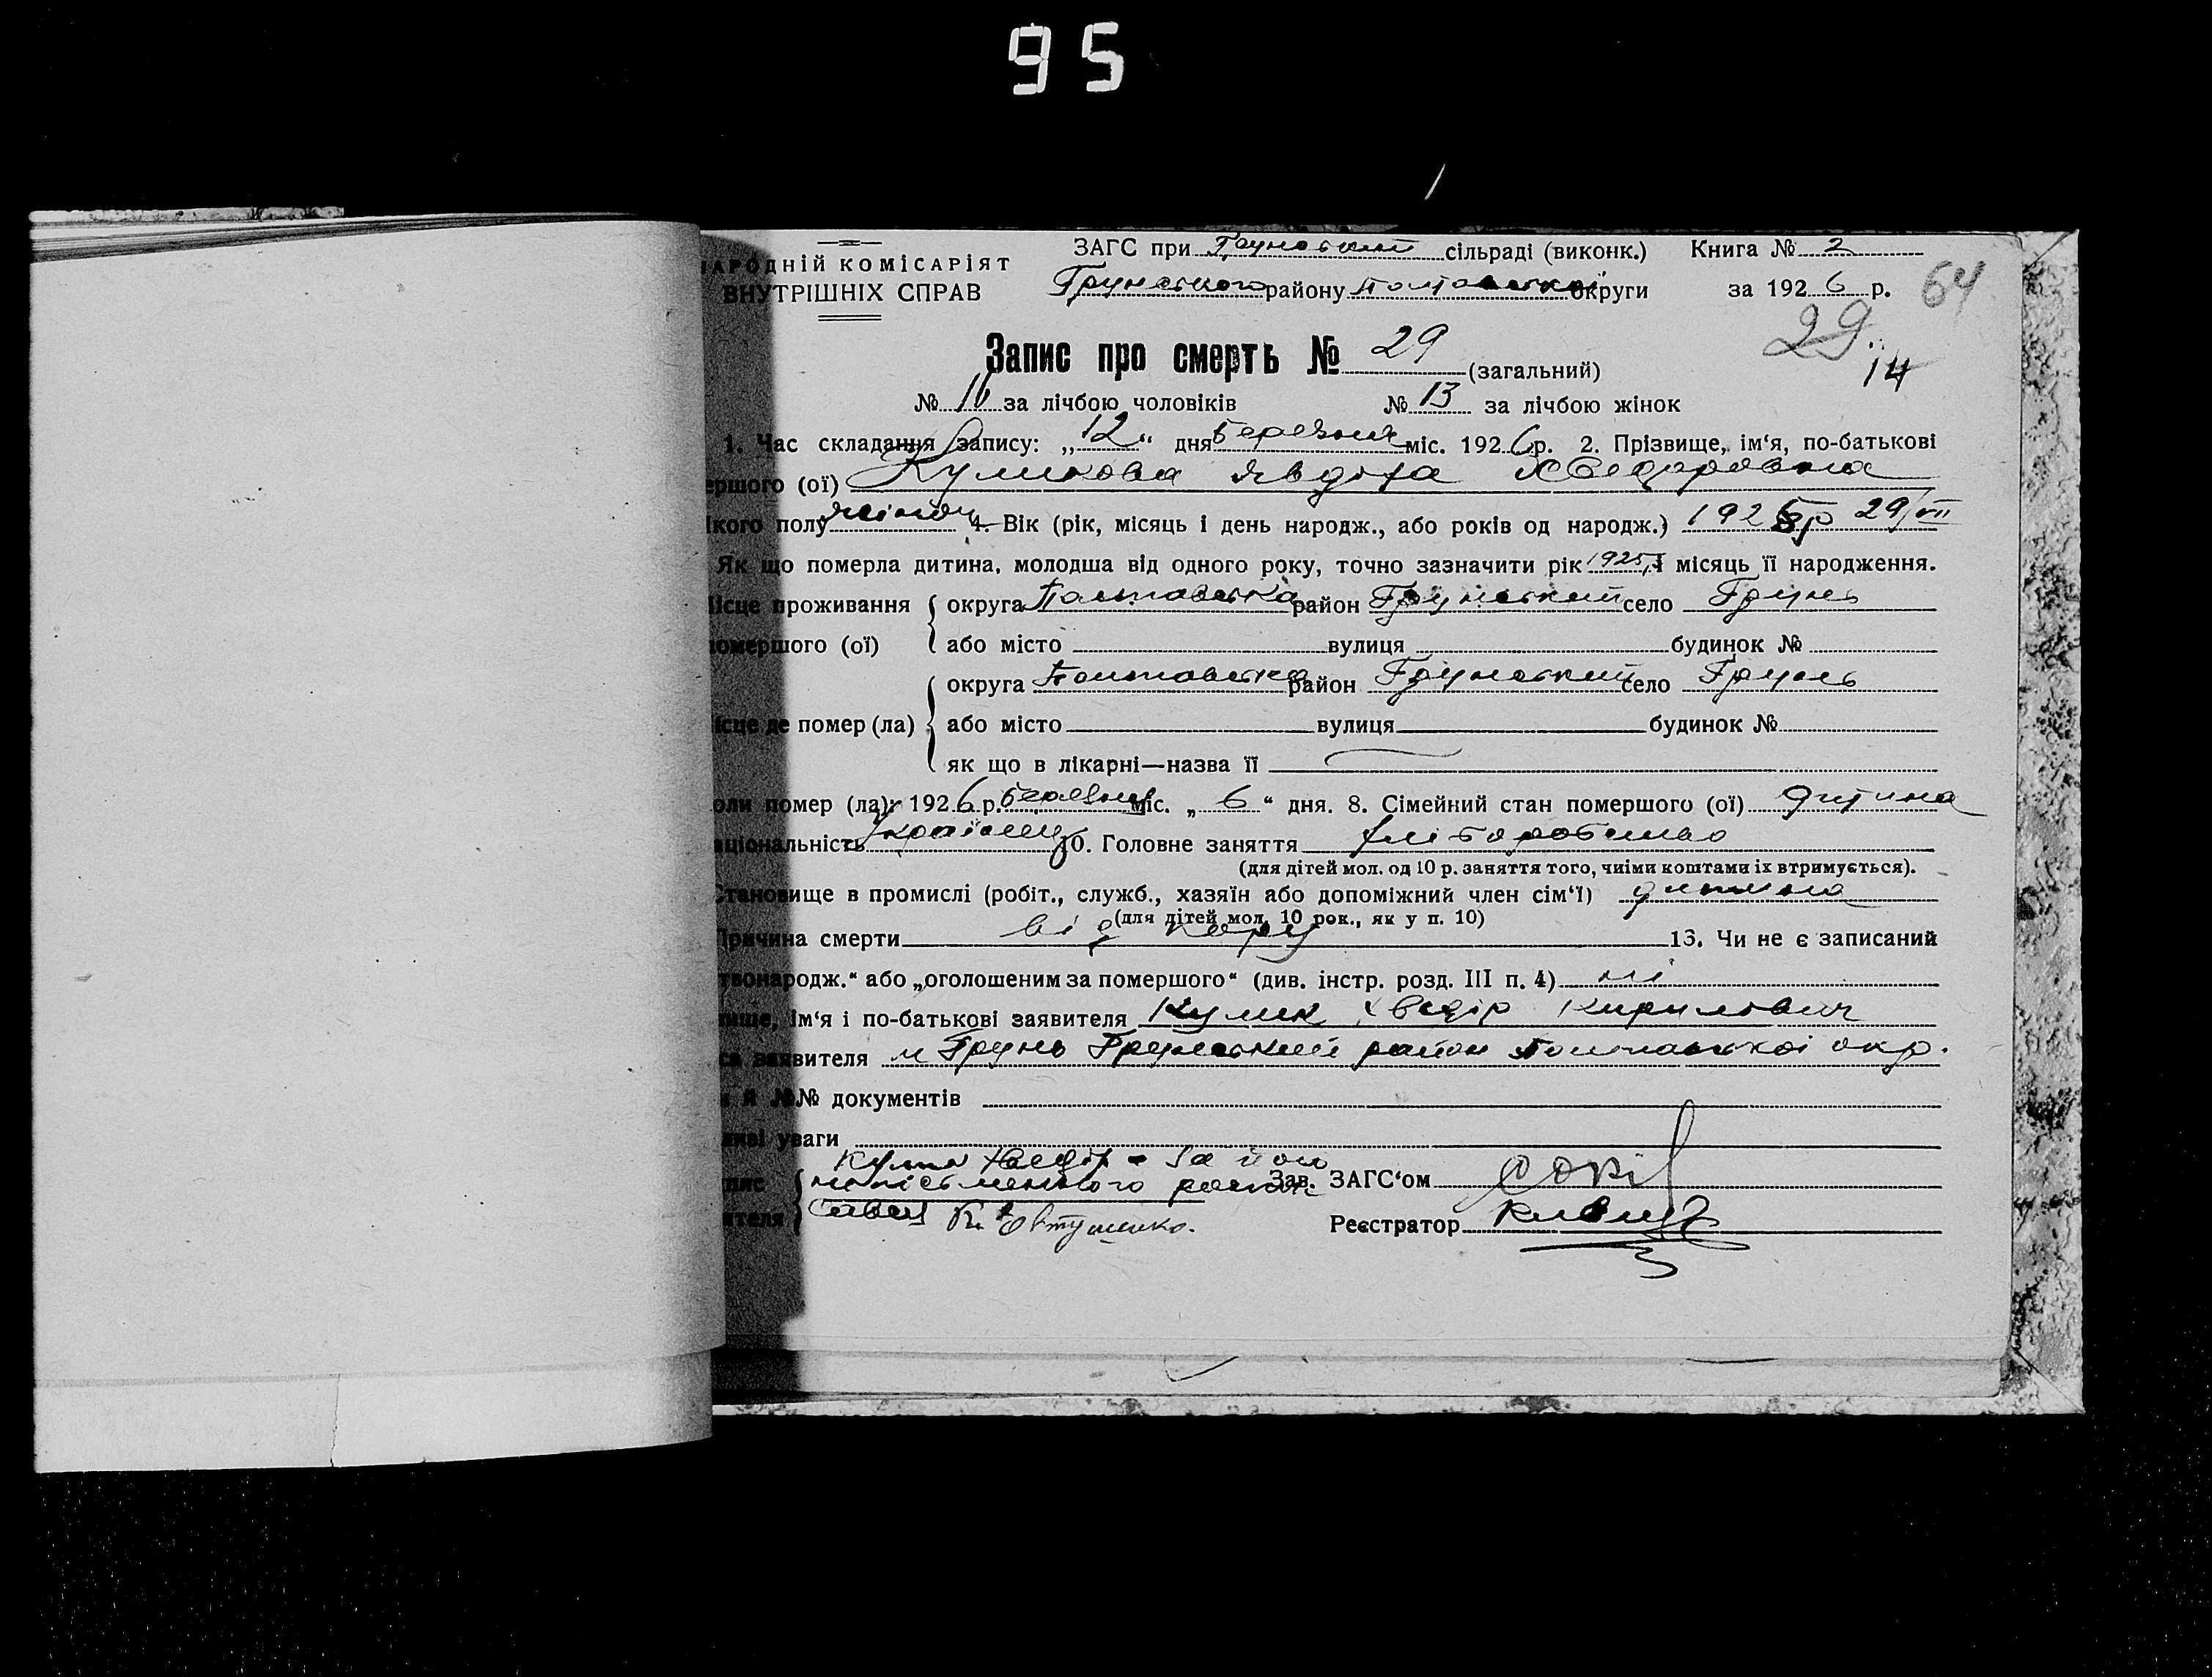 95
НАРОДНІЙ КОМІСАРІЯТ
ВНУТРІШНІХ СПРАВ
ЗАГС при Грунський сільраді (виконк.) Книга № 2
Грунського району Полтавської округи за 1926 р. 64
29
14
Запис про смерть № 29 (загальний)
№ 16 за лічбою чоловіків № 13 за лічбою жінок
1. Час складання запису: „12“ дня Березня міс. 1926 р. 2. Прізвище, ім‘я, по-батькові
ершого (ої) Куликова Явдоха Хведоровна
якого полу жіноч 4. Вік (рік, місяць і день народж., або років од народж.) 1925 р 29/VII
Як що померла дитина, молодша від одного року, точно зазначити рік 1925 і місяць її народження.
Місце проживання округа Полтавська район Грунський село Грунь
помершого (ої) або місто вулиця будинок №
округа Полтавська район Грунський село Грунь
Місце де помер (ла) або місто вулиця будинок №
як що в лікарні—назва її
оли помер (ла): 1926 р. Березня міс. „6“ дня. 8. Сімейний стан помершого (ої) дитина
аціональність Україн 10. Головне заняття хліборобство
(для дітей мол. од 10 р. заняття того, чиїми коштами їх втримується).
Становище в промислі (робіт., служб., хазяїн або допоміжний член сім‘ї) дитина
(для дітей мол. 10 рок., як у п. 10)
Причина смерти від кору 13. Чи не є записаний
твонародж.“ або „оголошеним за помершого“ (див. інстр. розд. III п. 4) ні
вище, ім‘я і по-батькові заявителя Кулик Хведір Кирилович
са заявителя м Грунь Грунський район Полтавської окр.
и й №№ документів
ливі уваги
Кулик Хведір - За його
пис неписьменного Зав. ЗАГС‘ом
ителя Євтушенко. Реєстратор